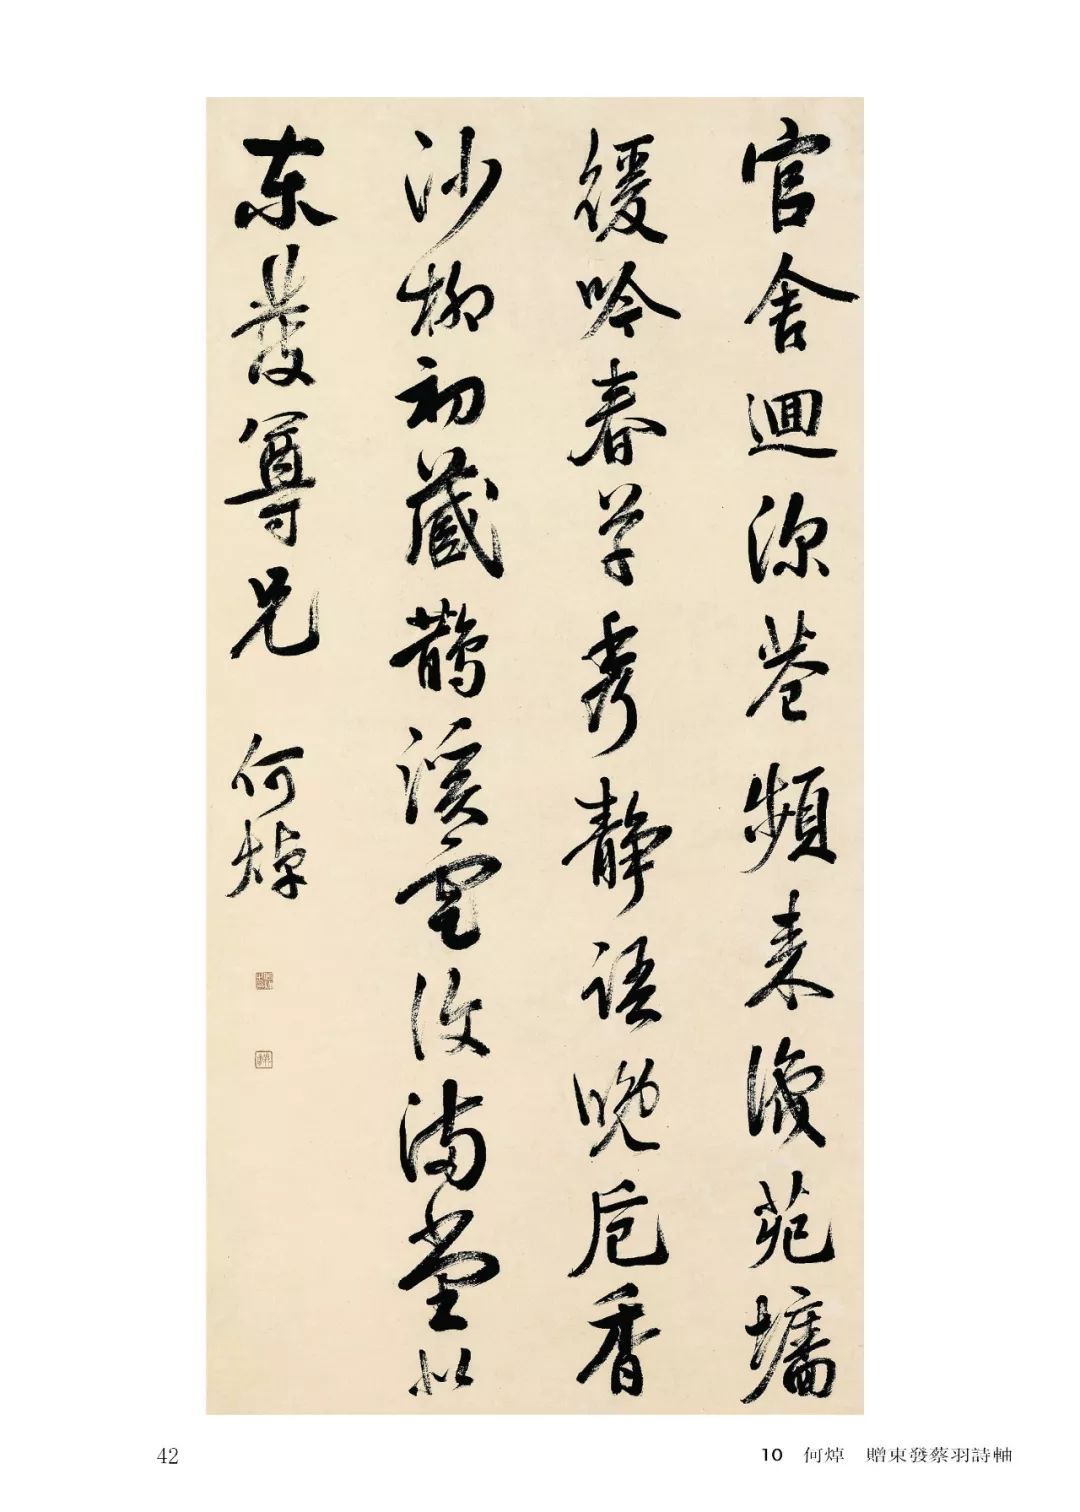 官舍迴深巷頻来後苑墻
緩吟春草秀靜語晚卮香
沙柳初藏鵲溪雲滿堂似
東發尊兄 何焯
42
10 何焯 贈東發蔡羽詩軸